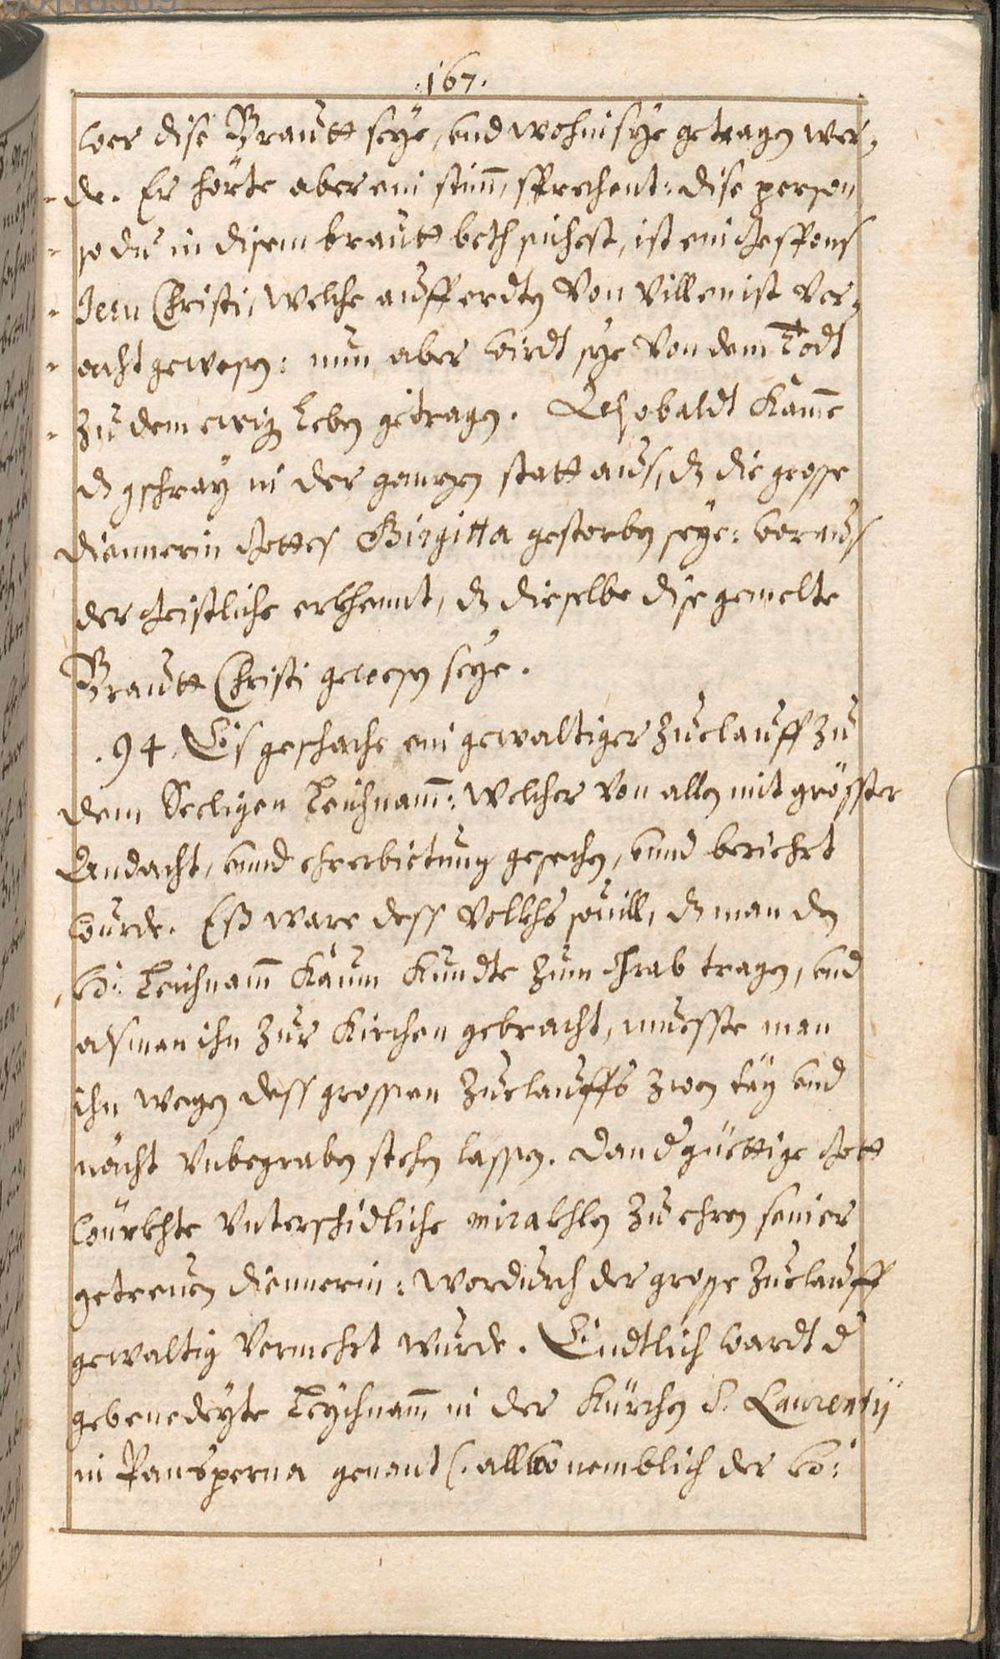 .167.
wer dise Brautt seye, und wohin sye getragen wer-
de. Er hörte aber ein stimm, sprechent: dise person
so du in disem brautt beth sichest, ist ein Gespons
Jesu Christi, welche auff erdten von villen ist ver-
acht gewesen: nun aber wirdt sye von dem Todt
zu dem ewig Leben getragen. Alsobaldt kame
dz gschray in der ganzen statt aus, dz die grosse
Diennerin Gottes Birgitta gestorben seye: woraus
der Geistliche erkhennt, dz dieselbe dise gemelte
Brautt Christi gewesen seye.
.94. Es geschache ein gewaltiger zuelauff zu
dem Seeligen Leichnamm: welcher von allen mit grösster
Andacht, unnd ehrerbietung gesechen, unnd beriehrt
wurde. Eß ware dess volkhs souill, dz man den
H: Leichnamm kaum kundte zum Grab tragen, und
als man ihn zur Kirchen gebracht, muesste man
ihn wegen dess grossen zuelauffs zwen täg und
nächt unbegraben stehen lassen. Dan d güettige Gott
würkhte unterschidliche mirakhlen zu ehren seiner
getreuen Diennerin: wordurch der grosse zuelauff
gewaltig vermehrt wurde. Endtlich wardt d
gebenedeyte Leychnamm in der Kürchen S. Laurentÿ
in Pansperna genant (: allwo nemblich der H: